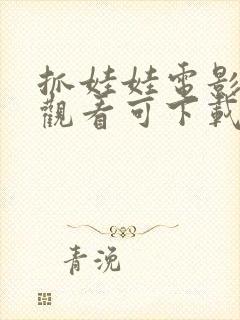 抓娃娃電影
觀看可下載
青浼